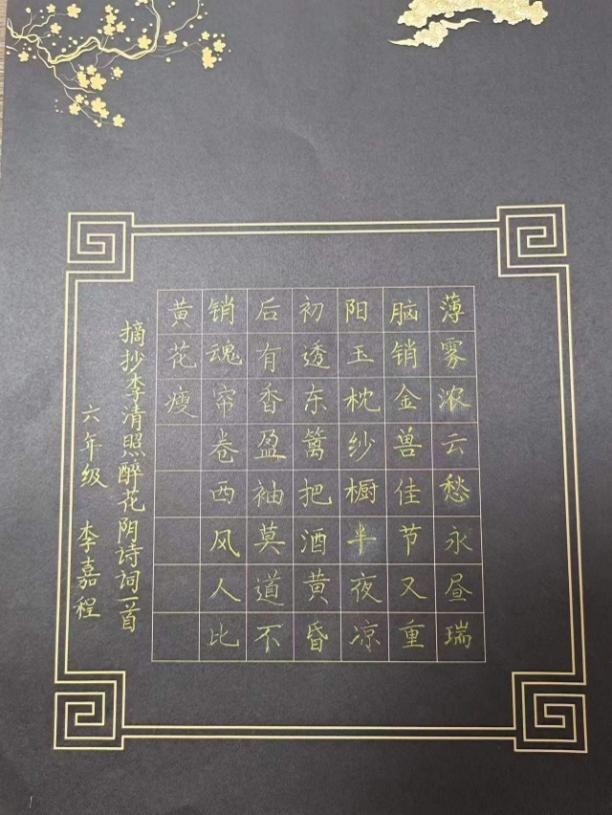 薄雾浓云愁永昼瑞
脑销金兽佳节又重
阳玉枕纱橱半夜凉
初透东篱把酒黄昏
后有香盈袖莫道不
销魂帘卷西风人比
黄花瘦
摘抄李清照醉花阴诗词一首
六年级 李嘉程